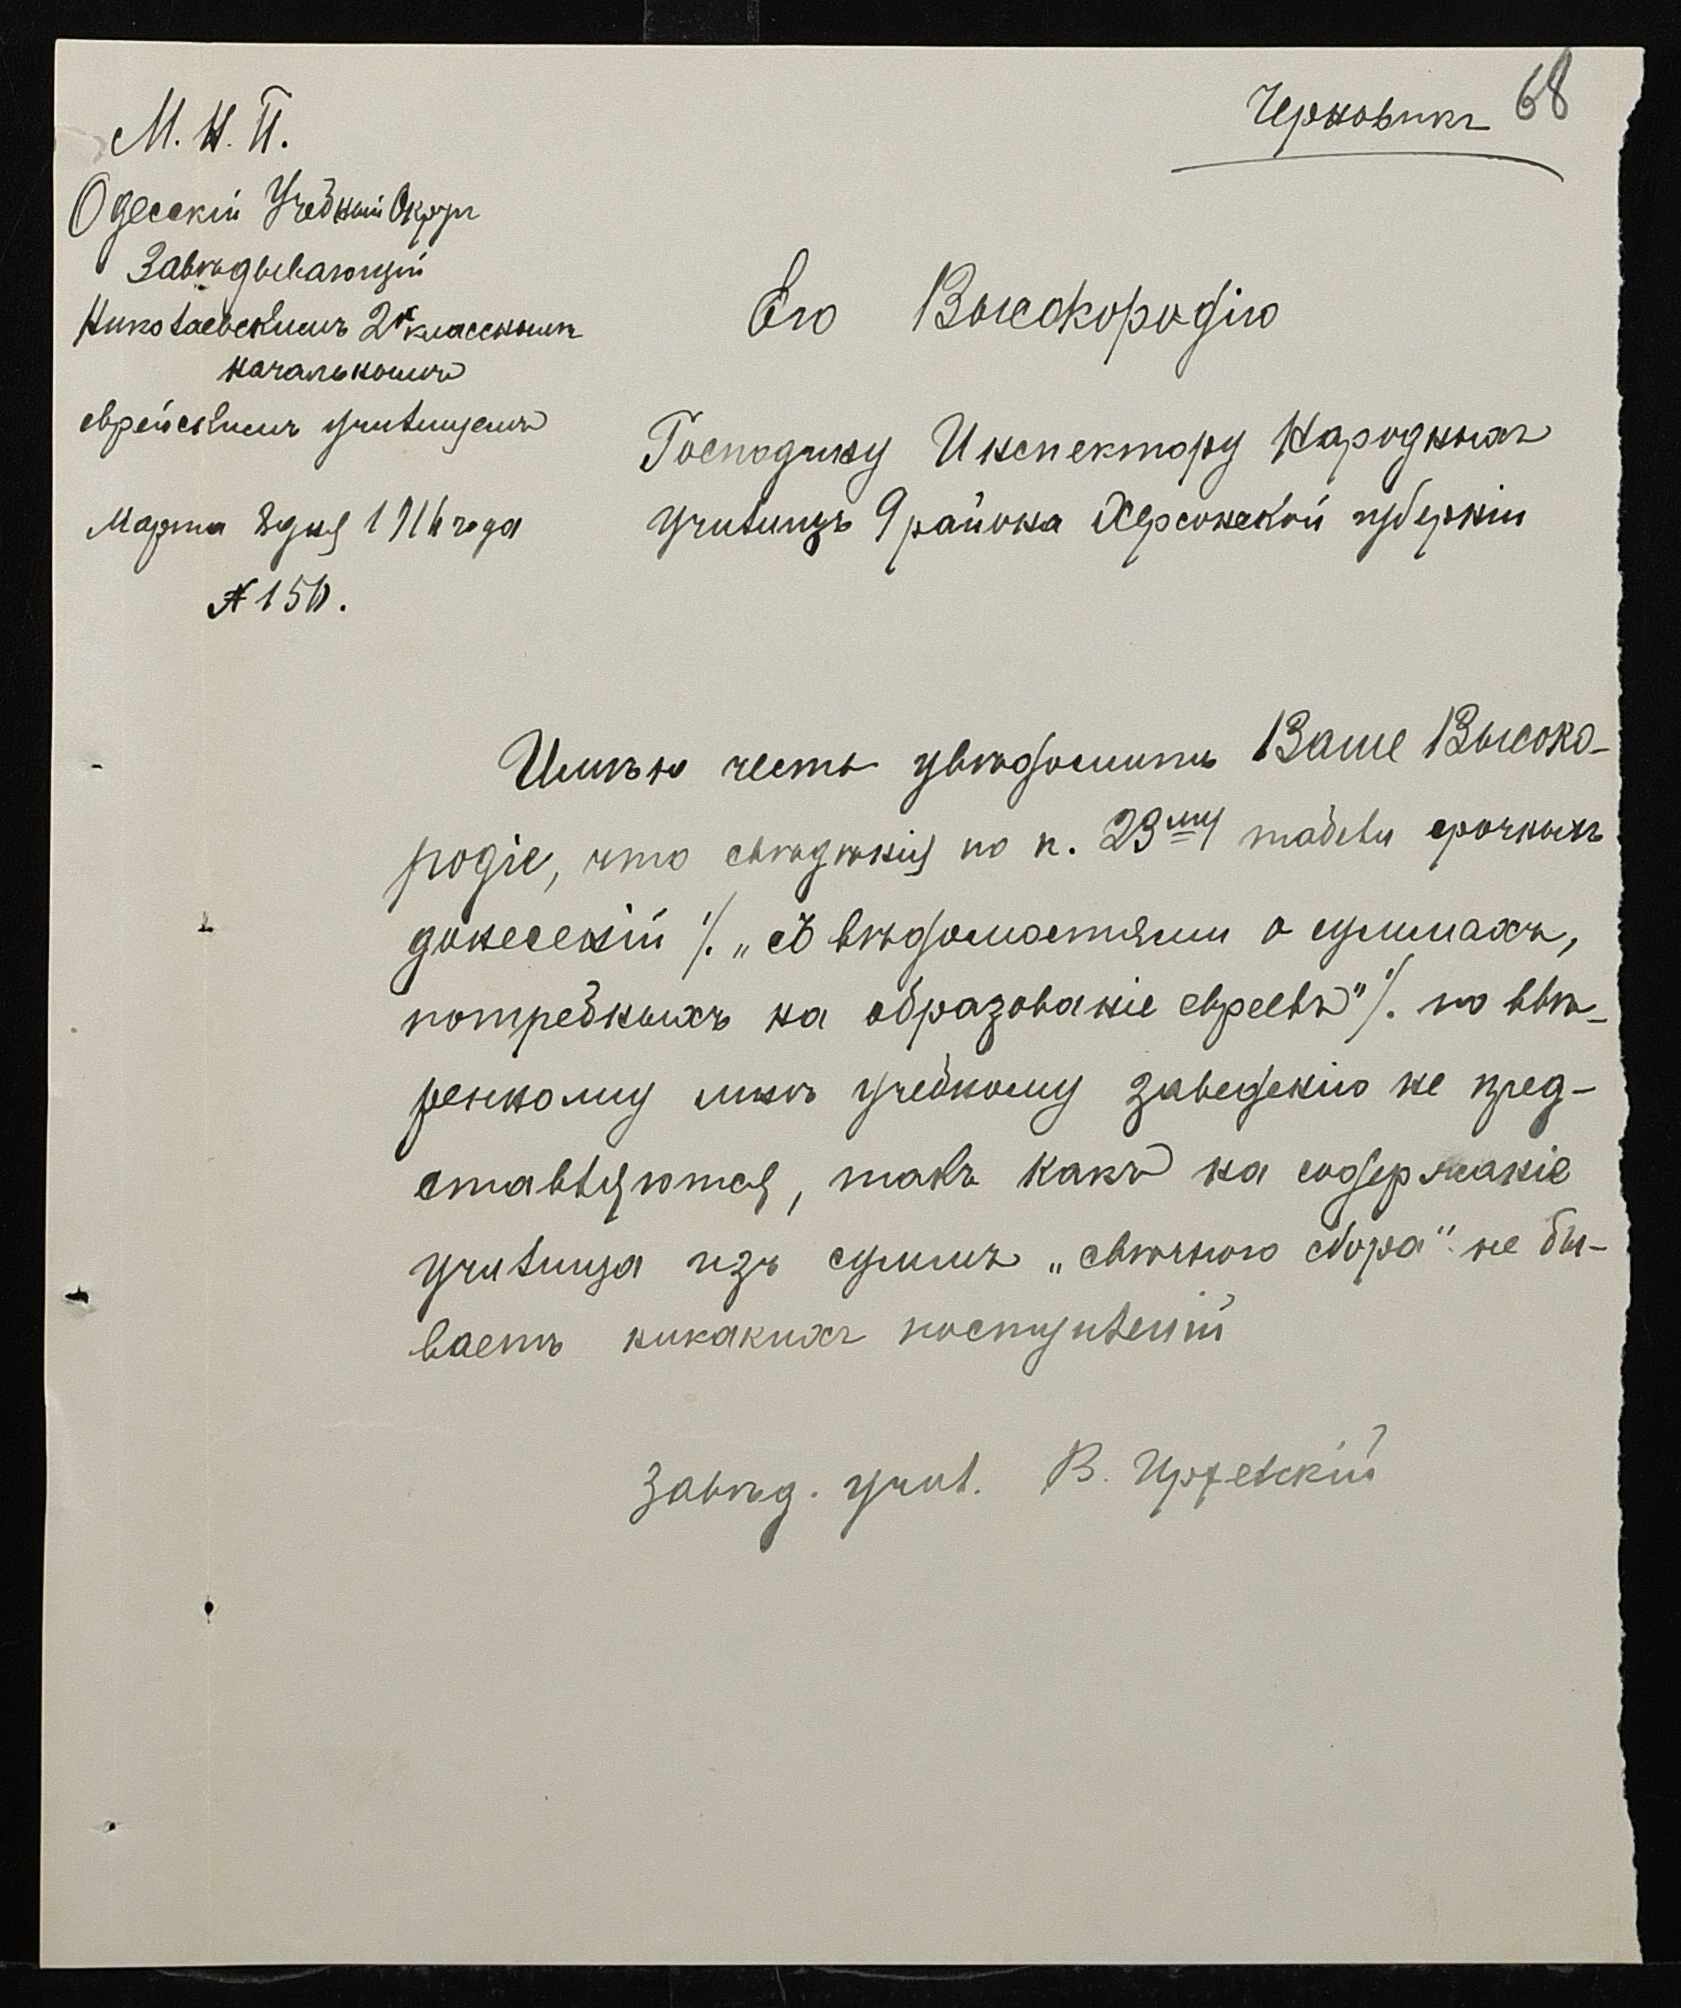 Черновикъ 68
М. Н. П.
Одесскій Учебный Округъ
Завѣдывающій
Николаевскимъ 2х класснымъ
начальнымъ
еврейскимъ училищемъ
Марта 8 дня 1916 года
№ 150.
Его Высокородію
Господину Инспектору Народныхъ
училищъ 9 района Херсонской губерніи
Имѣю честь увѣдомить Ваше Высоко-
родіе, что свѣдѣнія по п. 23му табели срочныхъ
донесеній /. „съ вѣдомостями о суммахъ,
потребныхъ на образованіе евреевъ" /. по ввѣ-
ренному мнѣ учебному заведенію не пред-
ставляются, такъ какъ на содержаніе
училища изъ суммъ „свѣчного сбора" не бы-
ваетъ никакихъ поступленій
Завѣд. учил. В.